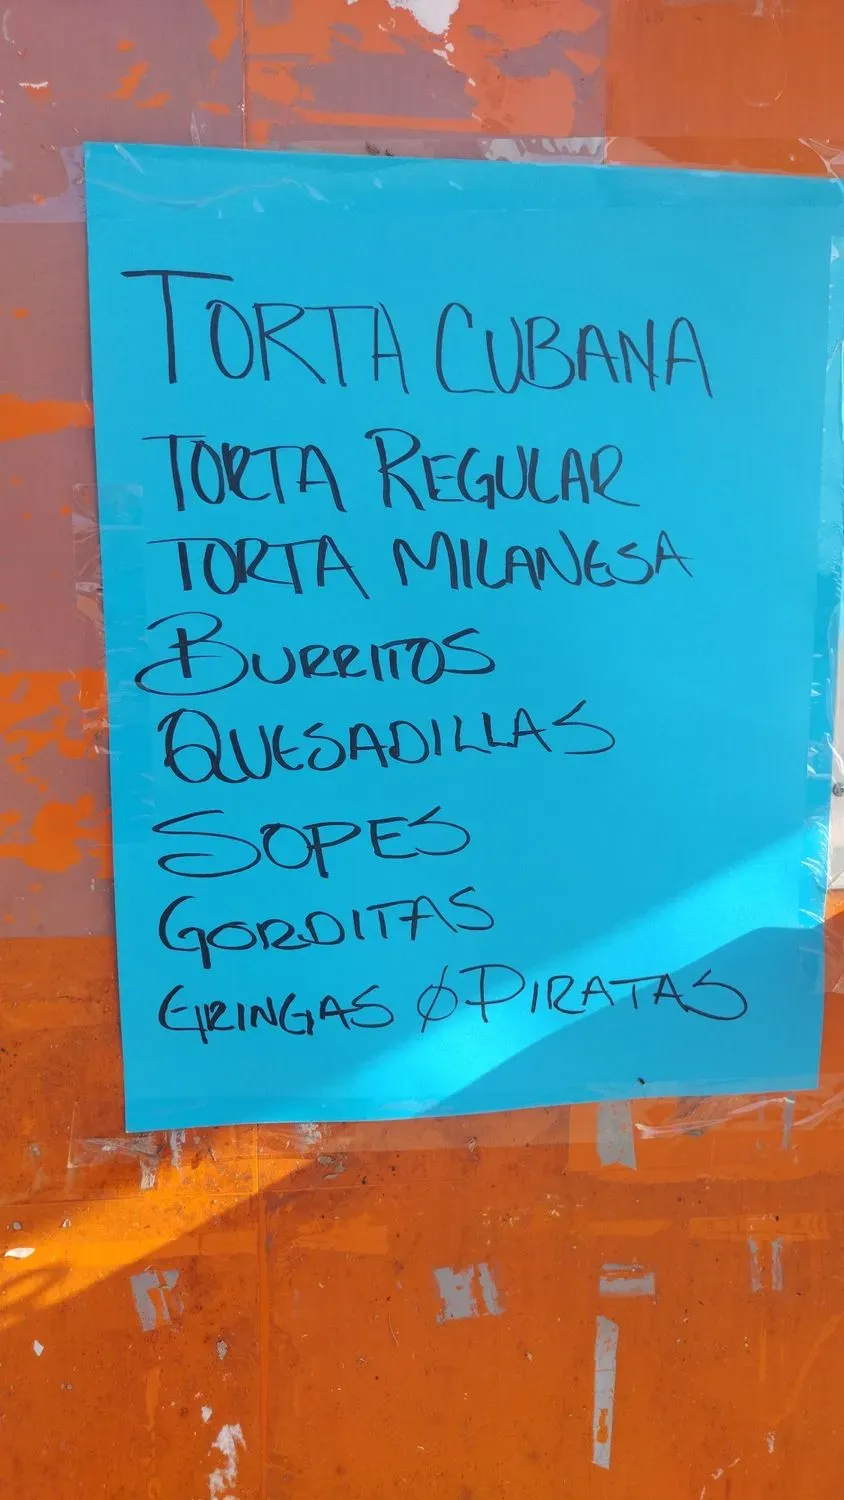 TORTA CUBANA
TORTA REGULAR
TORTA MILANESA
BURRITOS
QUESADILLAS
SOPES
GORDITAS
GRINGAS Ó PIRATAS